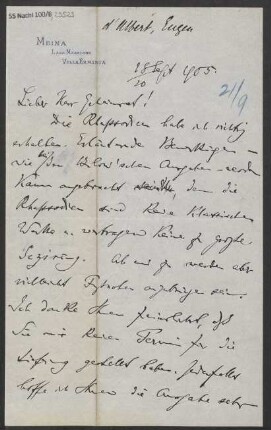 55 Nachl 100/B
d'Albert, Eugen
MEINA
LAGO MAGGIORE
VILLA ERMINIA
18 Sept 905.
20
21/9
Lieber Herr Geheimrat!
Die Rhapsodien habe ich richtig
erhalten. Erläuternde Bemerkungen –
wie bei den Bülow'schen Ausgaben – werden
kaum angebracht, denn die
Rhapsodien sind keine klassischen
Werke u. vertragen keine zu große
Sezirung. Ab und zu werden aber
vielleicht Fußnoten anzubringen sein.
Ich danke Ihnen, daß
Sie mir keinen Termin für die
Lieferung gestellt haben. Jedenfalls
hoffe ich Ihnen die Ausgabe sehr